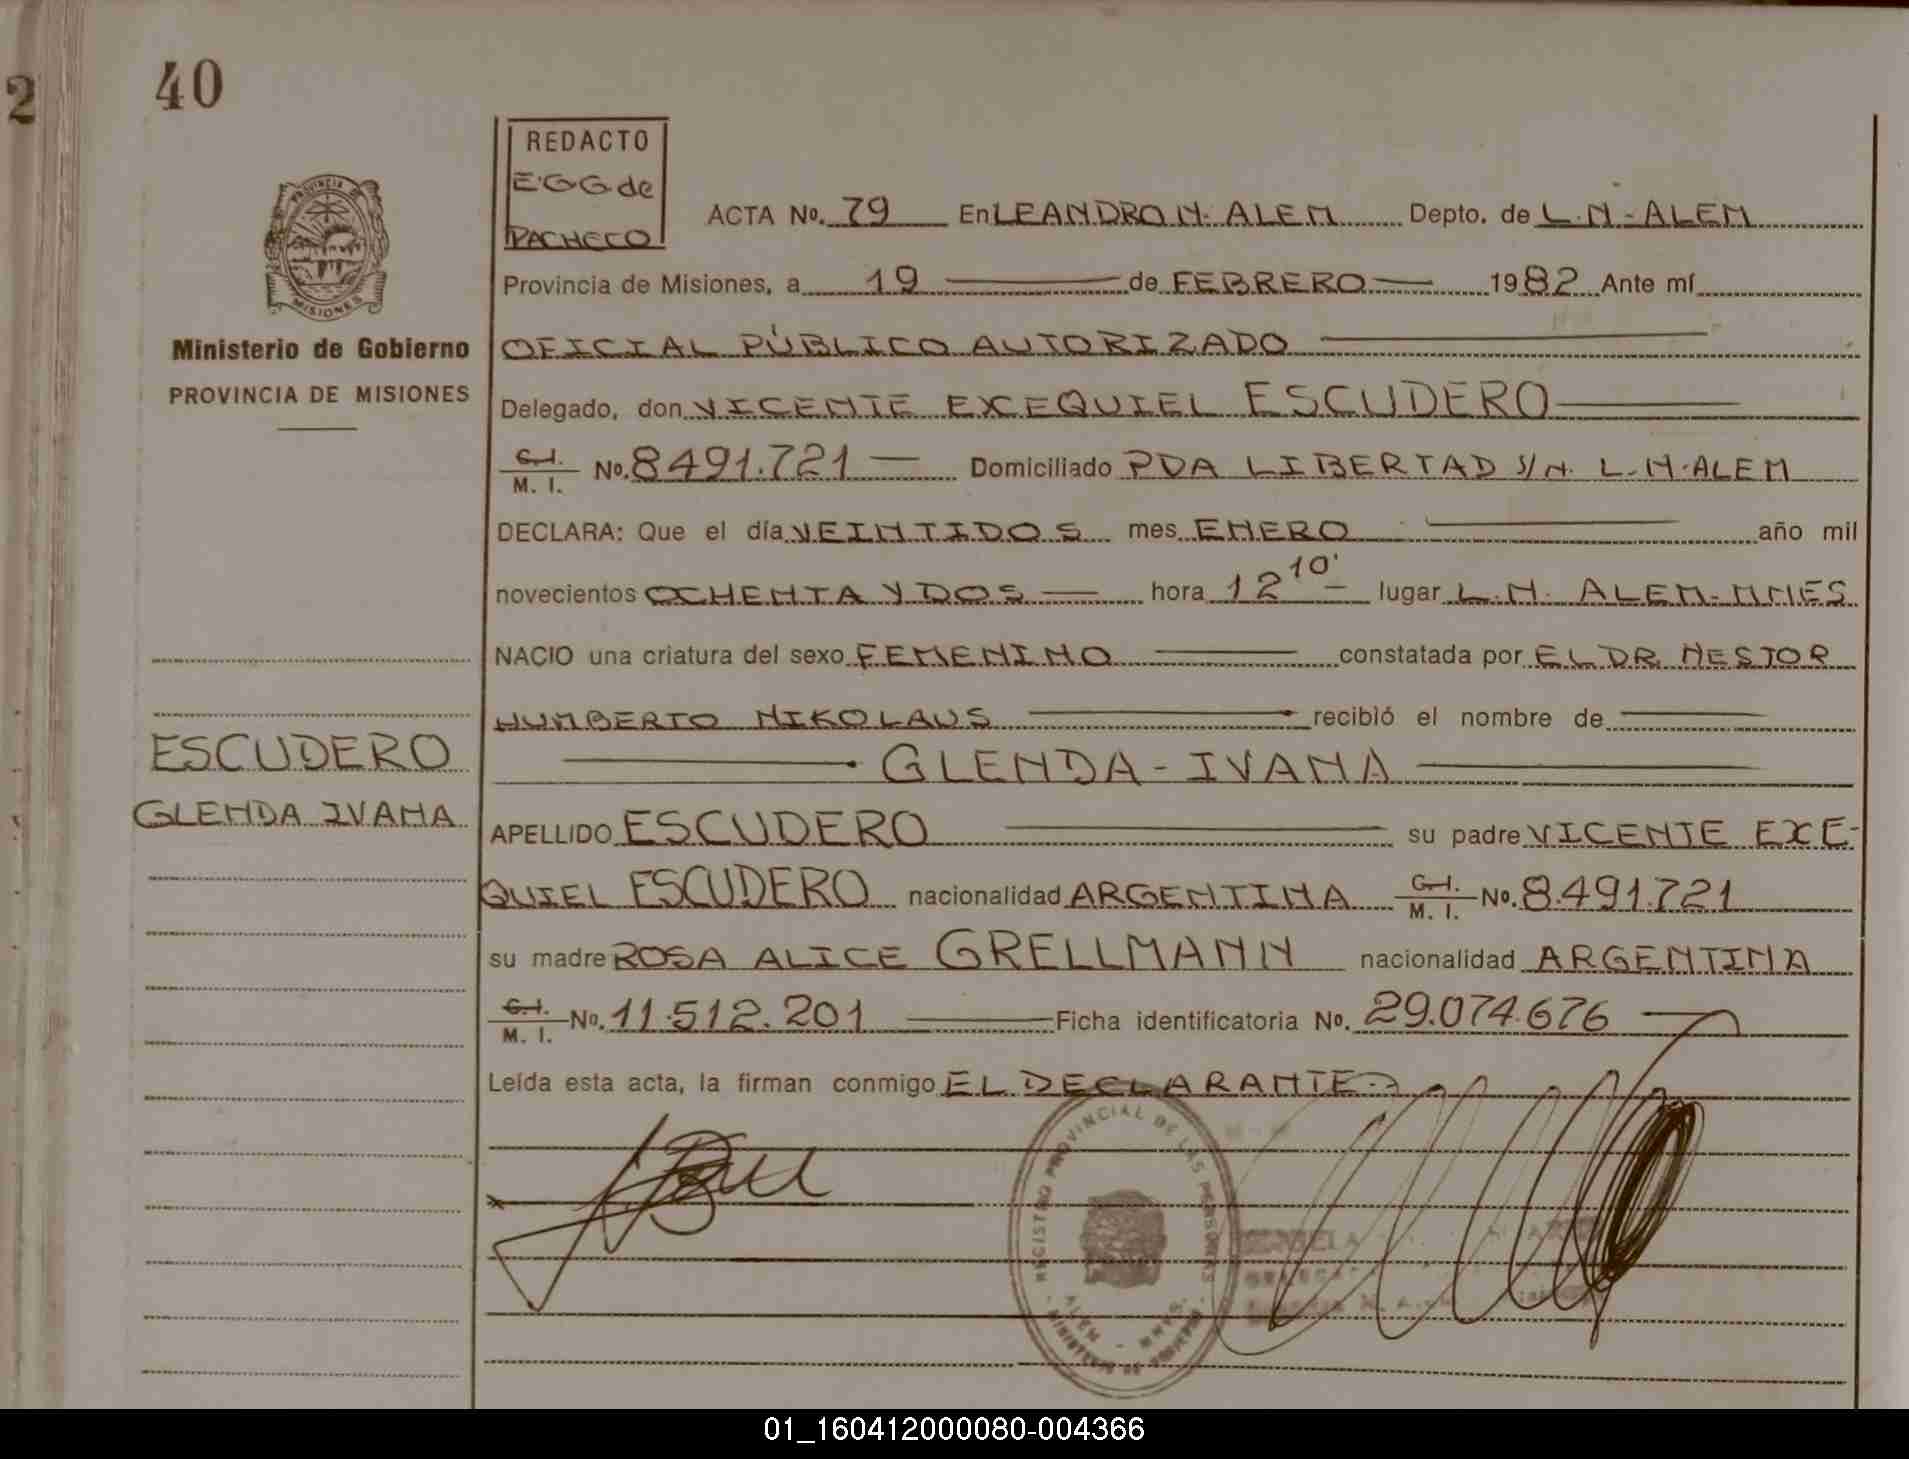 2
40
REDACTO
E.G.G de
PACHECO
PROVINCIA DE
MISIONES
Ministerio de Gobierno
PROVINCIA DE MISIONES
ACTA No. 79 En LEANDRO N. ALEM Depto. de L.N-ALEM
Provincia de Misiones, a 19 de FEBRERO 1982 Ante mí
OFICIAL PÚBLICO AUTORIZADO
Delegado, don VICENTE EXEQUIEL ESCUDERO
C.I. M. I. No. 8491.721 Domiciliado PDA LIBERTAD S/N. L.N.ALEM
DECLARA: Que el día VEINTIDOS mes ENERO año mil
novecientos OCHENTA Y DOS hora 12 10' lugar L.N. ALEM-MNES
NACIO una criatura del sexo FEMENINO constatada por EL DR. NESTOR
HUMBERTO NIKOLAUS recibió el nombre de
GLENDA-IVANA
ESCUDERO
GLENDA IVANA
APELLIDO ESCUDERO su padre VICENTE EXE-
QUIEL ESCUDERO nacionalidad ARGENTINA C.I. M. I. No. 8.491.721
su madre ROSA ALICE GRELLMANN nacionalidad ARGENTINA
C.I. M. I. No. 11.512.201 Ficha identificatoria No. 29.074.676
Leída esta acta, la firman conmigo EL DECLARANTE
REGISTRO PROVINCIAL DE LAS PERSONAS
ALEM - MNES.
MINISTERIO DE GOBIERNO
01_160412000080-004366